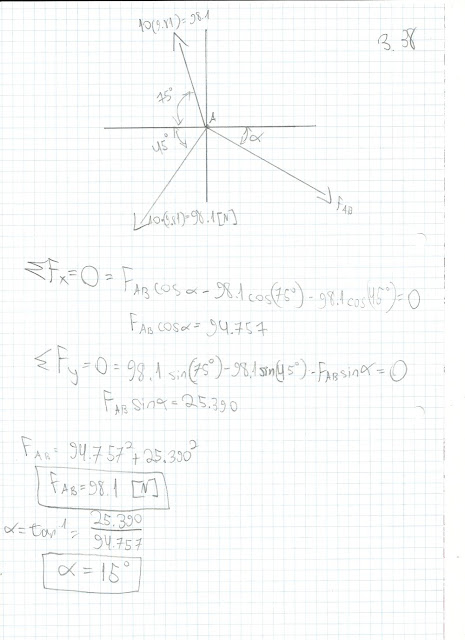 10(9.81)=98.1
3.38
75°
A
45°
α
F_AB
10(9.81)=98.1 [N]
ΣFx=0 = F_AB cos α - 98.1 cos(75°) - 98.1 cos(45°)=0
F_AB cos α = 94.757
ΣFy=0=98.1 sin(75°)-98.1 sin(45°)-F_AB sin α=0
F_AB sin α = 25.390
F_AB= 94.757²+25.390²
F_AB=98.1 [N]
α=tan⁻¹= 25.390/94.757
α = 15°